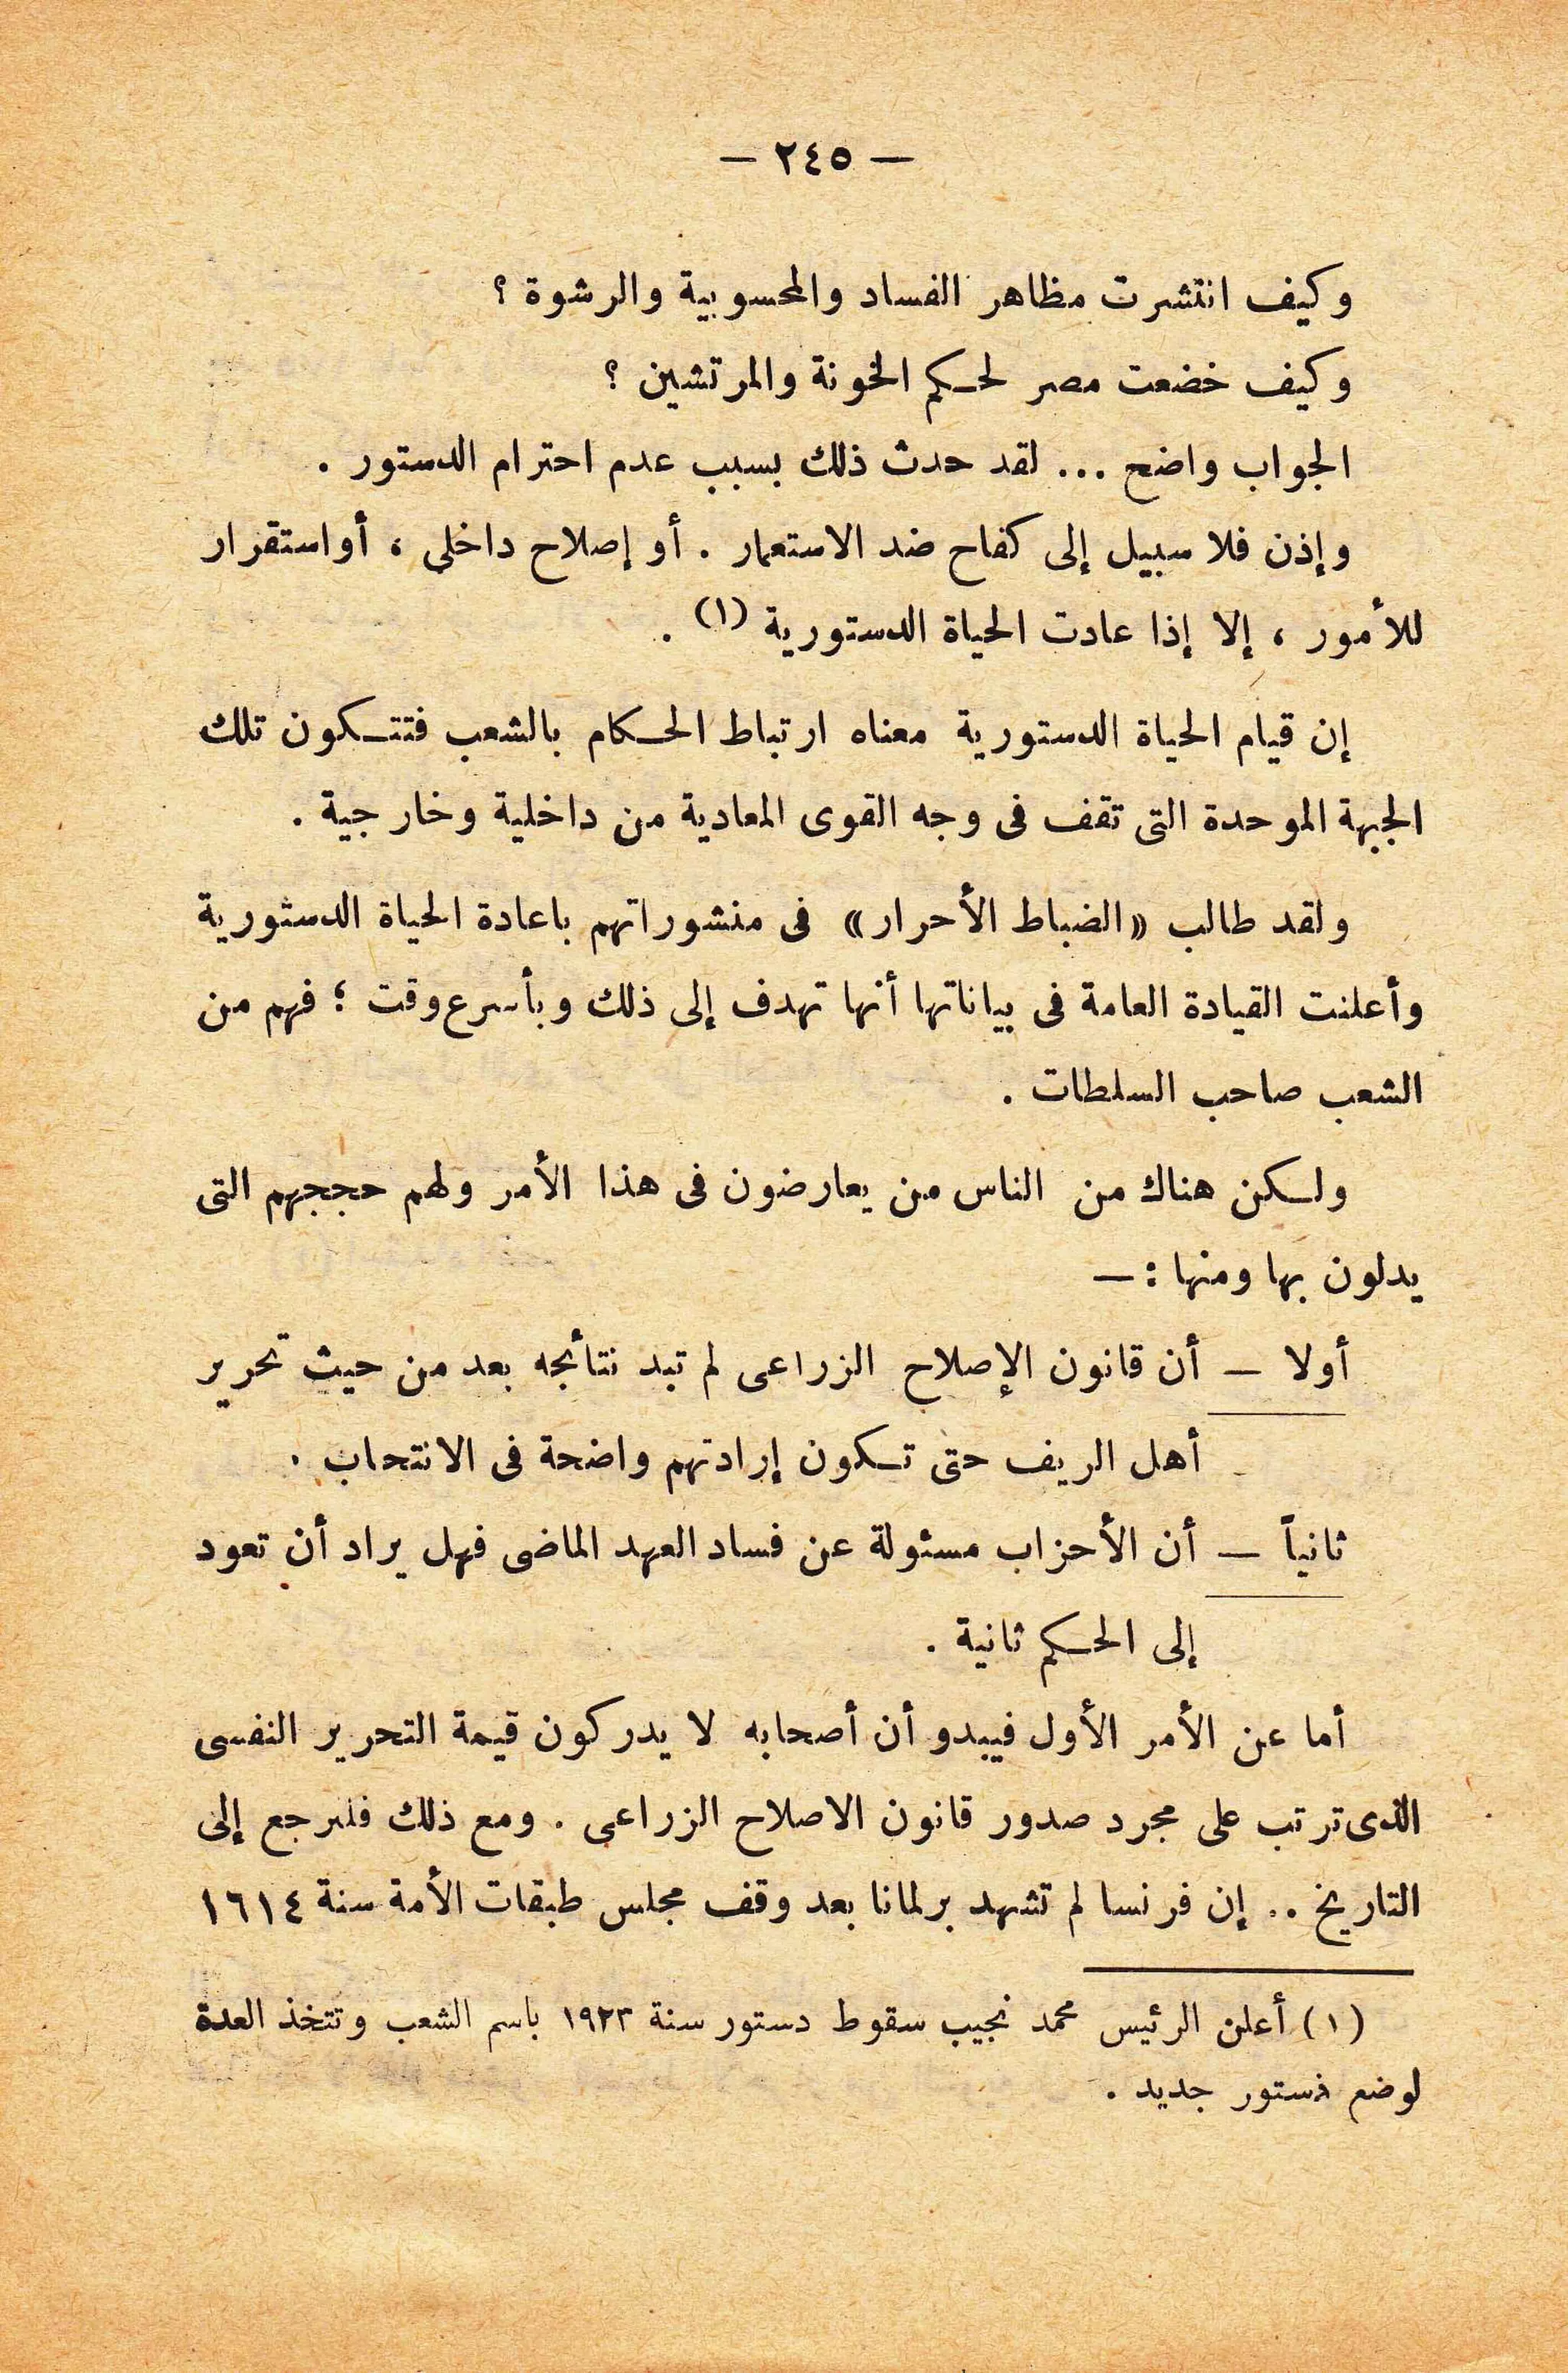 — ٢٤٥ —
وكيف انتشرت مظاهر الفساد والمحسوبية والرشوة ؟
وكيف خضعت مصر لحكم الخونة والمرتشين ؟
الجواب واضح ... لقد حدث ذلك بسبب عدم احترام الدستور .
وإذن فلا سبيل إلى كفاح ضد الاستعمار . أو إصلاح داخلى ، أو استقرار
للأمور ، إلا إذا عادت الحياة الدستورية (١) .
إن قيام الحياة الدستورية معناه ارتباط الحكام بالشعب فتتكون تلك
الجبهة الموحدة التى تقف فى وجه القوى المعادية من داخلية وخارجية .
ولقد طالب «الضباط الأحرار» فى منشوراتهم باعادة الحياة الدستورية
وأعلنت القيادة العامة فى بياناتها أنها تهدف إلى ذلك وبأسرع وقت ؛ فهم من
الشعب صاحب السلطات .
ولكن هناك من الناس من يعارضون فى هذا الأمر ولهم حججهم التى
يدلون بها ومنها : —
أولا — أن قانون الإصلاح الزراعى لم تبد نتائجه بعد من حيث تحرير
أهل الريف حتى تكون إرادتهم واضحة فى الانتحاب .
ثانياً — أن الأحزاب مسئولة عن فساد العهد الماضى فهل يراد أن تعود
إلى الحكم ثانية .
أما عن الأمر الأول فيبدو أن أصحابه لا يدركون قيمة التحرير النفسى
الذى ترتب على مجرد صدور قانون الاصلاح الزراعى . ومع ذلك فلنرجع إلى
التاريخ .. إن فرنسا لم تشهد برلمانا بعد وقف مجلس طبقات الأمة سنة ١٦١٤
(١) أعلن الرئيس محمد نجيب سقوط دستور سنة ١٩٢٣ باسم الشعب وتتخذ العدة
لوضع ذستور جديد .